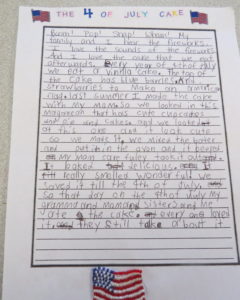 THE 4 OF JULY CAKE
Boom! Pop! Snap! Wham! My
family and I hear the fireworks.
I love the sounds of the fireworks
And I love the cake that we eat
afterwords. Every year of
we eat a vanilla cake. The top of
the cake has blue and
strawbarries to make an
flag. last summer I made the cake
with my mama. So we looked in this
magazean that has cute cupcakes
and pie and cakes. and we looked
at this cake and it look cute
so we make it. we mixed the batter
and put it in the oven and it
my mom care fuley took it out
It baked delicious.
It really smelled wonderful! we
saved it till the 4th of July.
so that day on the 4th of July my
gramma and mama and sisters and me
ate the cake. and every one loved
it. and they still talk about it